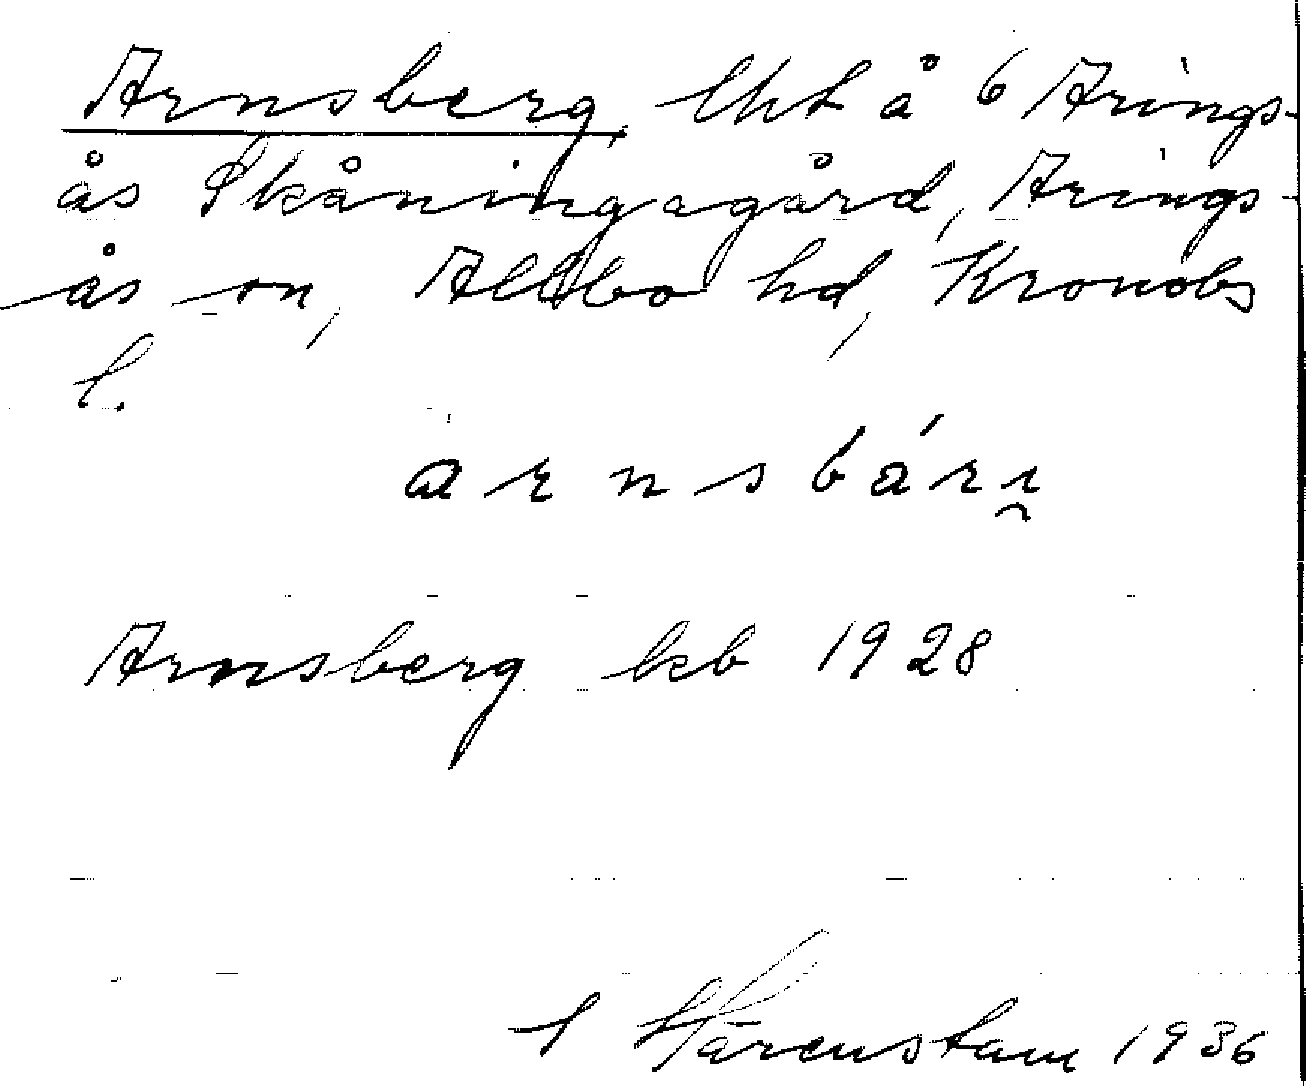 Arnsberg, lht å 6 Arings-
ås Skåningagård, Arings-
ås sn, Allbo hd, Kronobs
l.
arnsbárı̯
Arnsberg kb 1928
Härenstam 1936